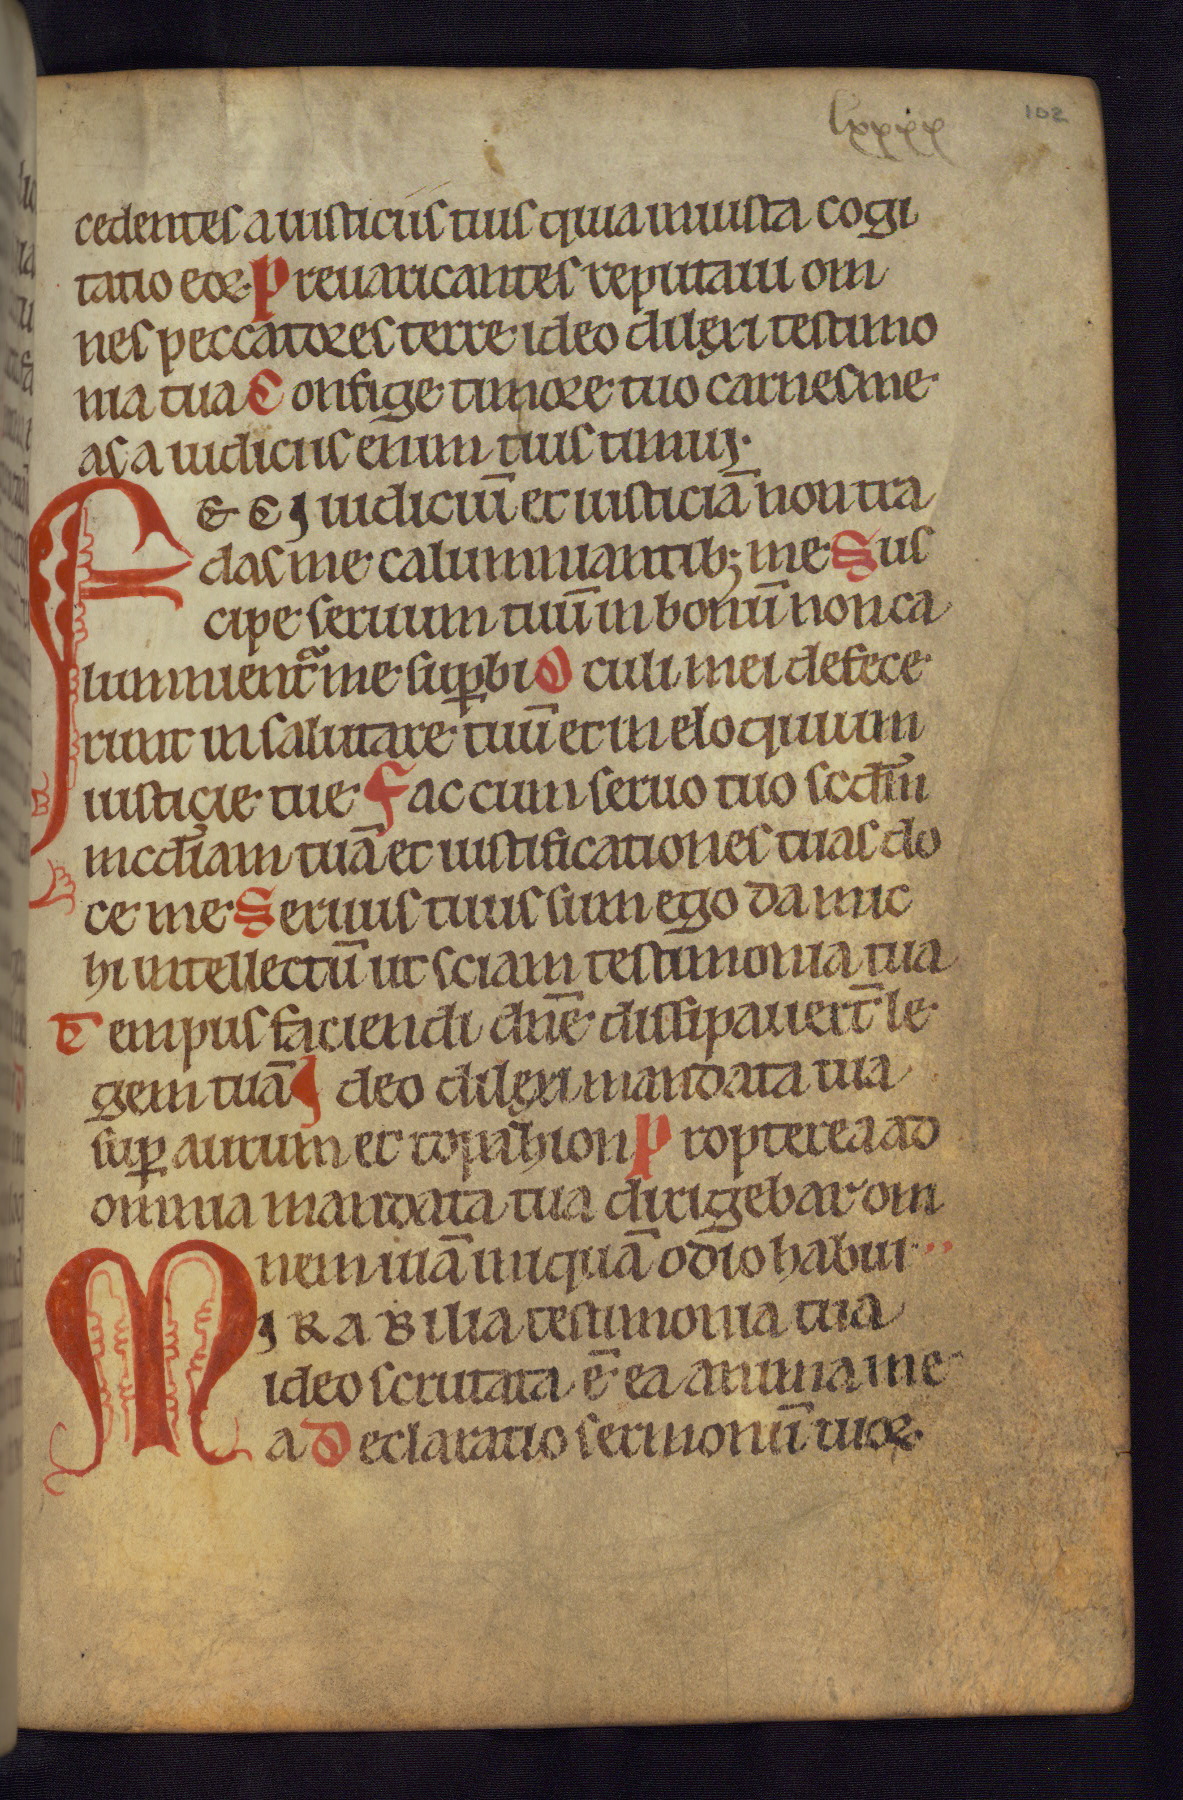 lxxxx
102
cedentes a iusticiis tuis quia iniusta cogi
tatio eoꝝ. Preuaricantes reputaui om
nes peccatores terre ideo dilexi testimo
nia tua Confige timore tuo carnes me
as a iudiciis enim tuis timui.
FECI iudiciū et iusticiā non tra
das me calumniantibꝫ me Sus
cipe seruum tuū in bonū non ca
lumnientᷓ me suꝑbi Oculi mei defece
runt in salutare tuū et in eloquium
iusticie tue Fac cum seruo tuo scdm̄
mcdīam tuā et iustificationes tuas do
ce me Seruus tuus sum ego da mic
hi intellectū ut sciam testimonia tua
Tempus faciendi dn̄e dissipauert̄ le
gem tuā Ideo dilexi mandata tua
suꝑ aurum et topazhion Propterea ad
omnia mandata tua dirigebar om
nem uiā iniquā odio habui
MIRABilia testimonia tua
ideo scrutata ē ea anima me
a Declaratio sermonū tuoꝝ.